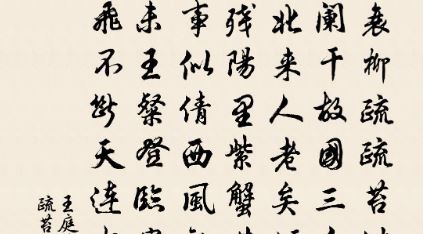 衰柳疏疏苔
阑干故國三
北来人老矣
残陽里紫蟹
事似倩西風
未王粲登臨
飛不斷天連
王庭
疏苔